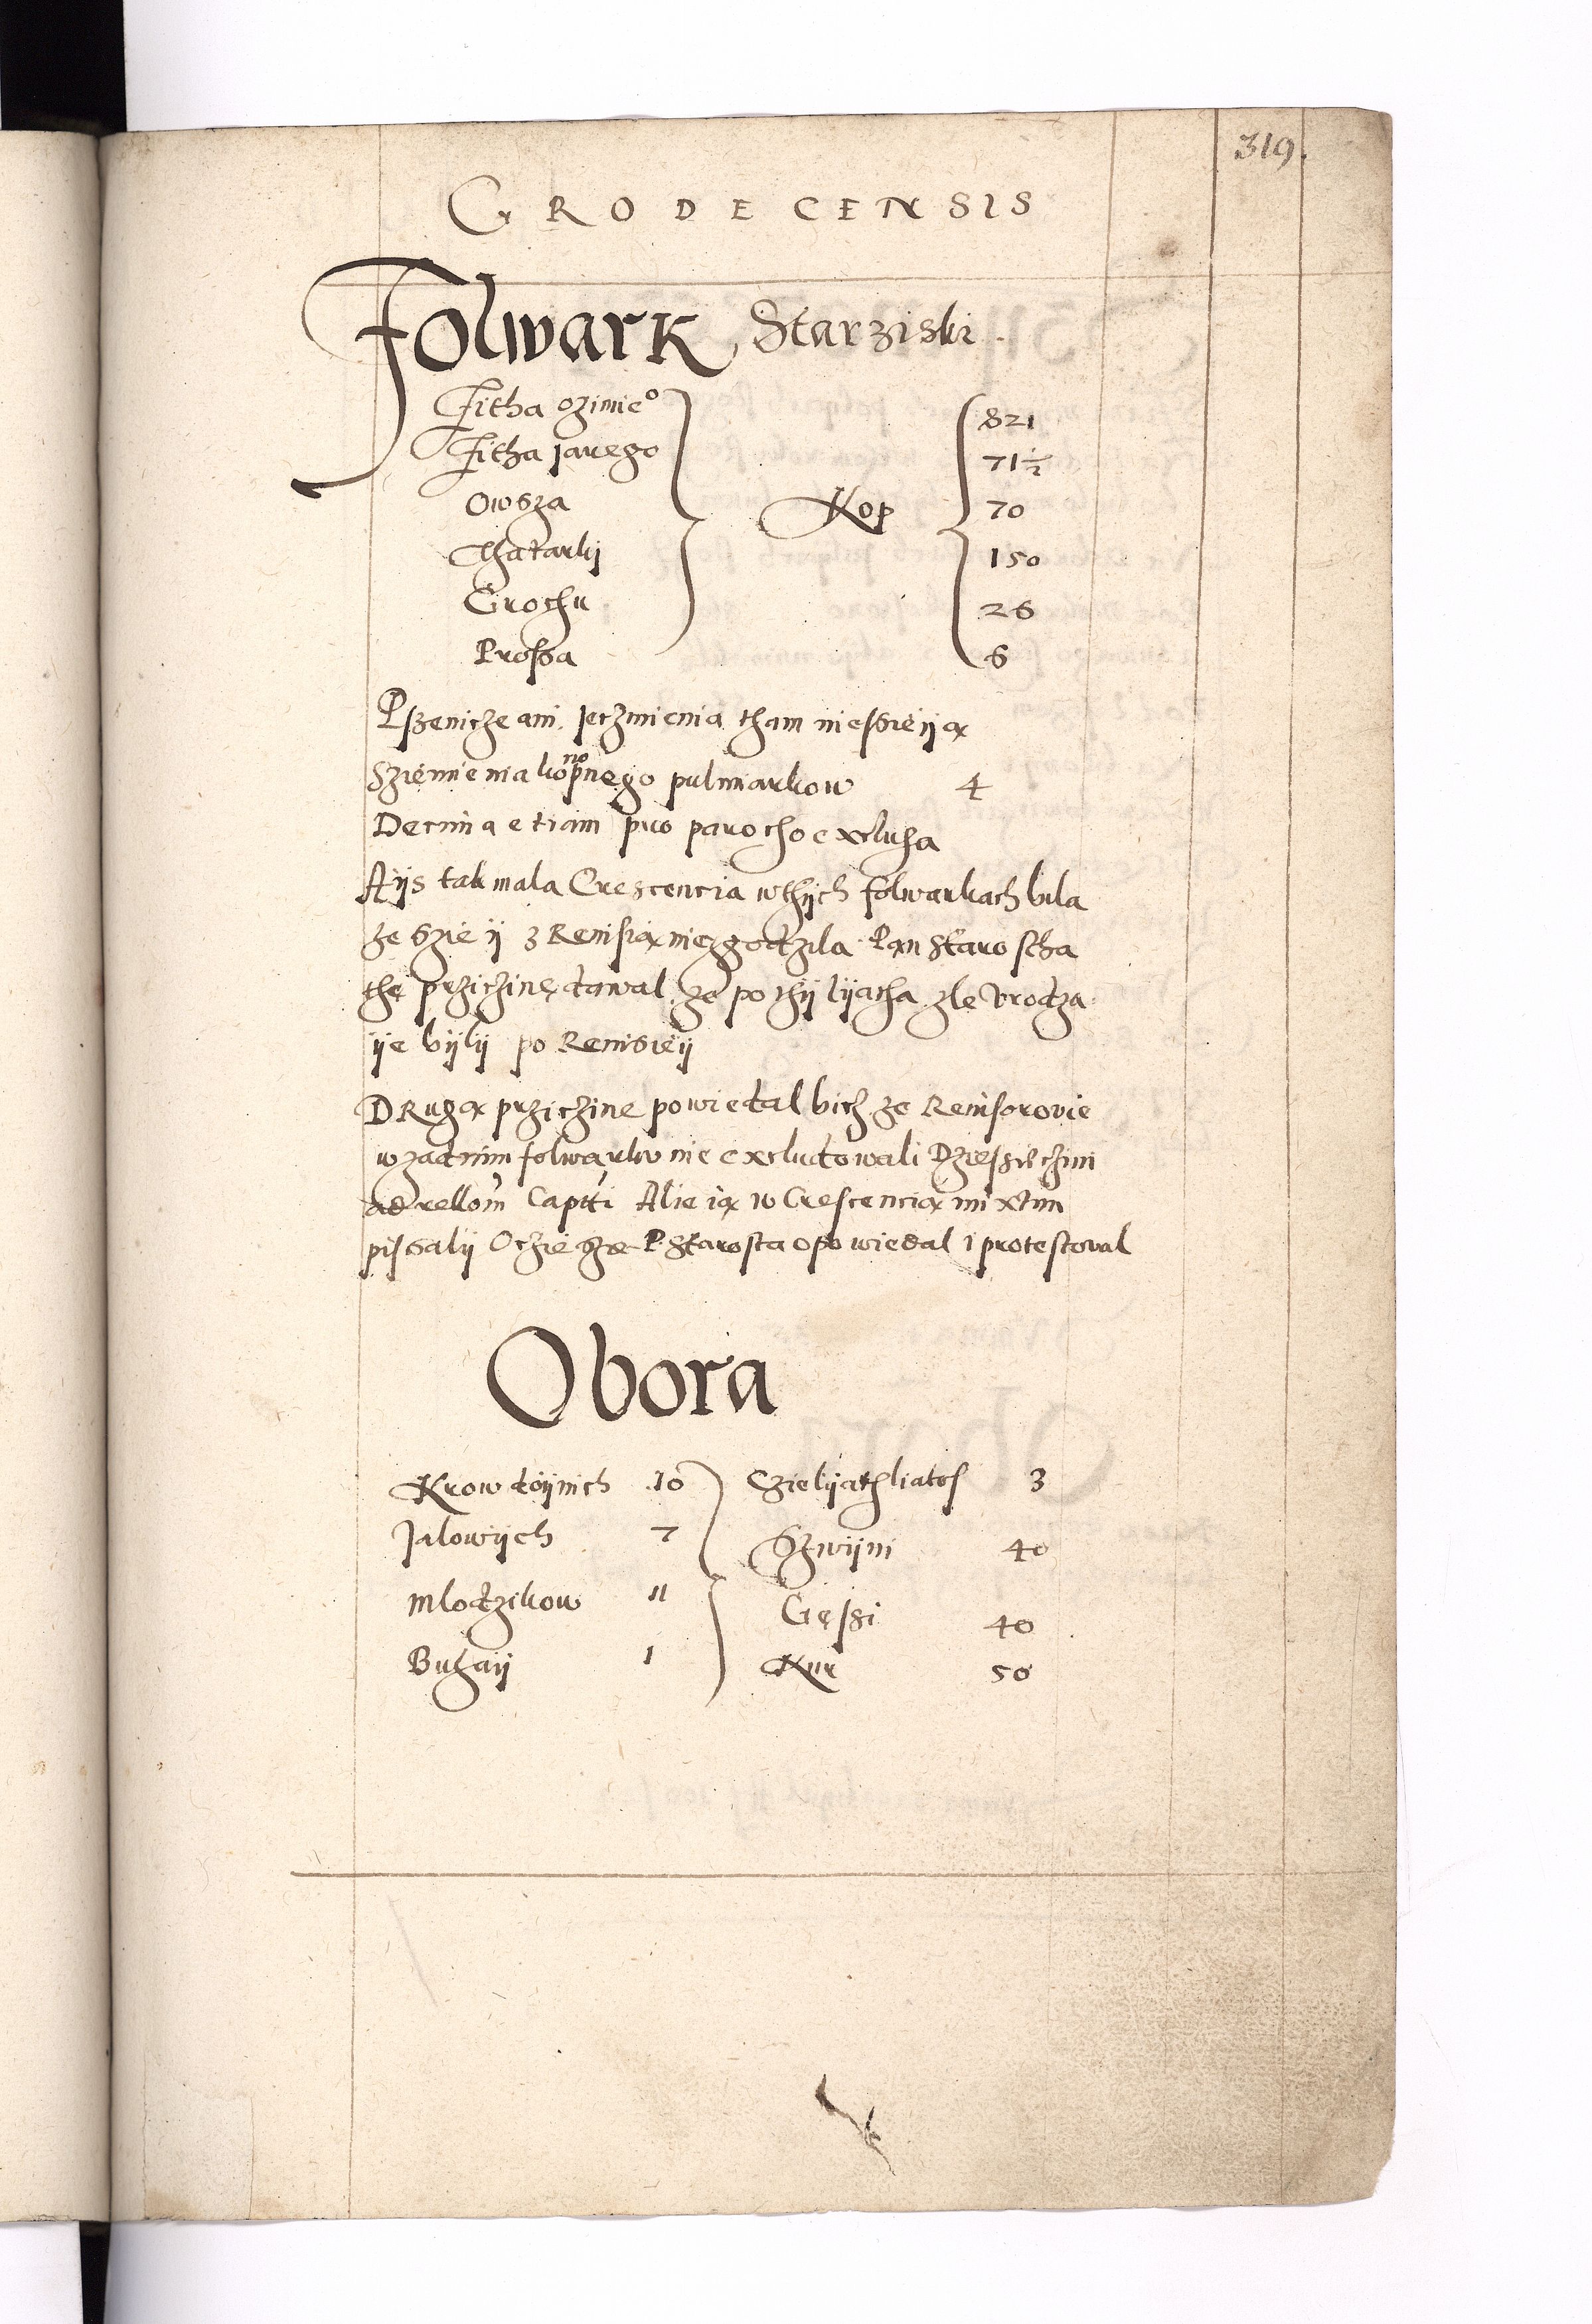 319.
GRODECENSIS
Folwark Starziski.
Zitha ozimie° 821
Zitha jarego 71½
Owsza Kop 70
Thatarkij 150
Grochu 26
Prossa 6
Pszenicze ani jeczmienia tham niessieiją
Sziemienia konopnego pulmiarkow 4
Decima etiam pro parocho exclusa
Aijs tak mala Crescencia wthijch folwarkach bila
ze szie ij z Remisią niezgodzila Pan Starostha
thę prziczinę dawal ze po thij lijatha zle Urodza
ije bijlij po Remisieij
Drugą prziczine powiedal bicz ze Reuisorovie
w zadnim folwarku nie excludowali Dziessieczini
ad rellom Capitti Alie ią w Crescencią mixtim
pissalij Oczie sze P. Starosta opowiedal i protestoval
Obora
Krow doijnich 10 Czielijath liatos 3
Jalowijch 7 Szwijni 40
Mlodzikow 11 Gęssi 40
Buhaij 1 Kur 50